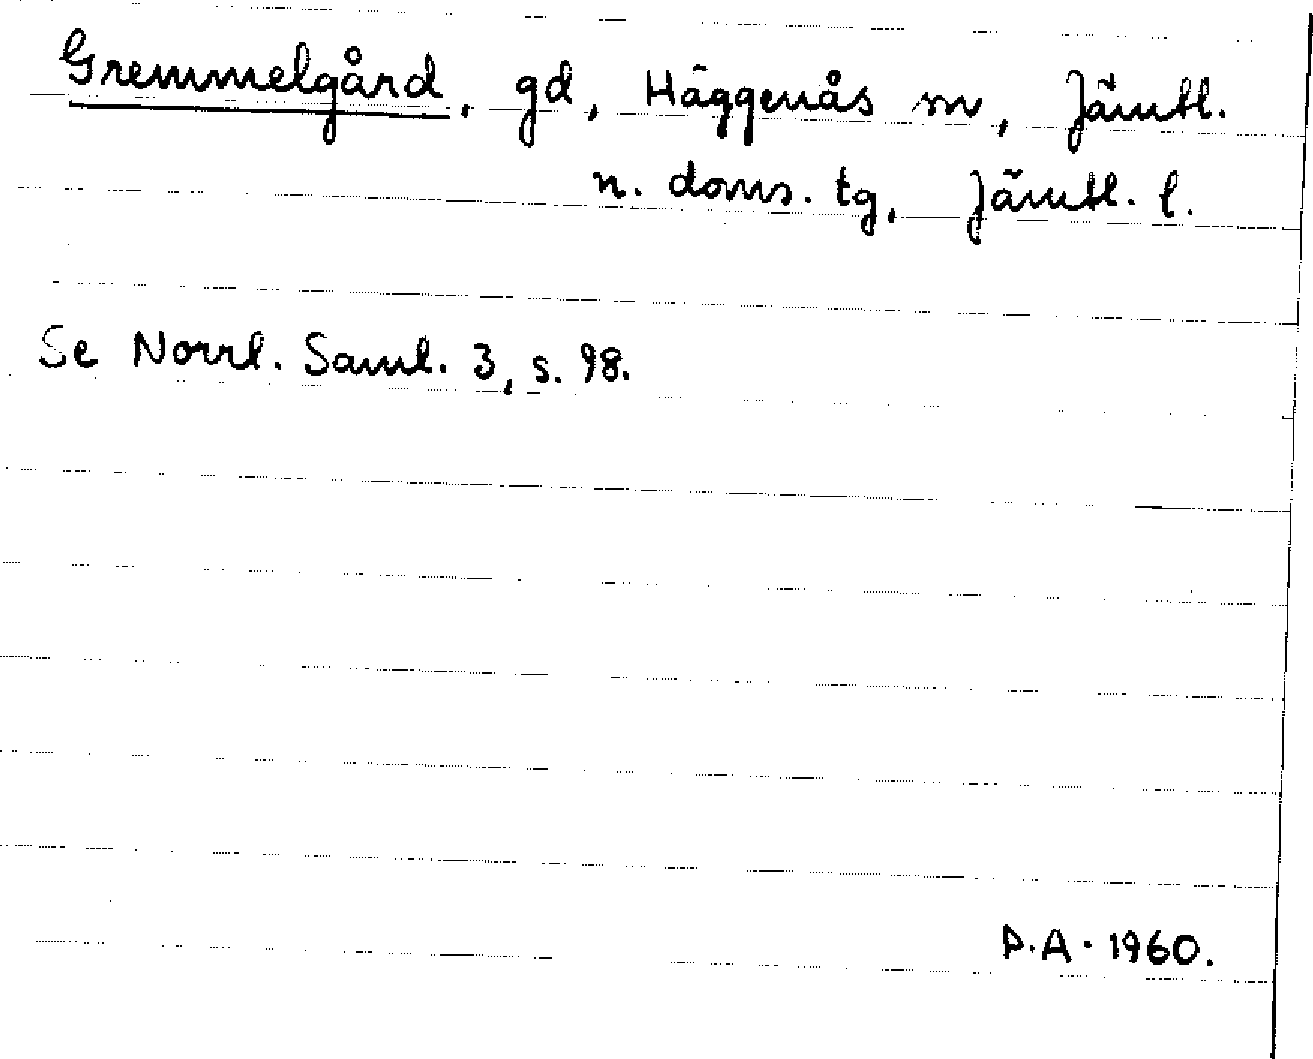 Gremmelgård, gd, Häggenås sn, Jämtl.
n. doms. tg, Jämtl. l.
Se Norrl. Saml. 3, s. 98.
D.A. 1960.